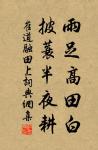 雨足高田白
披蓑半夜耕
崔道融田上祠典網集